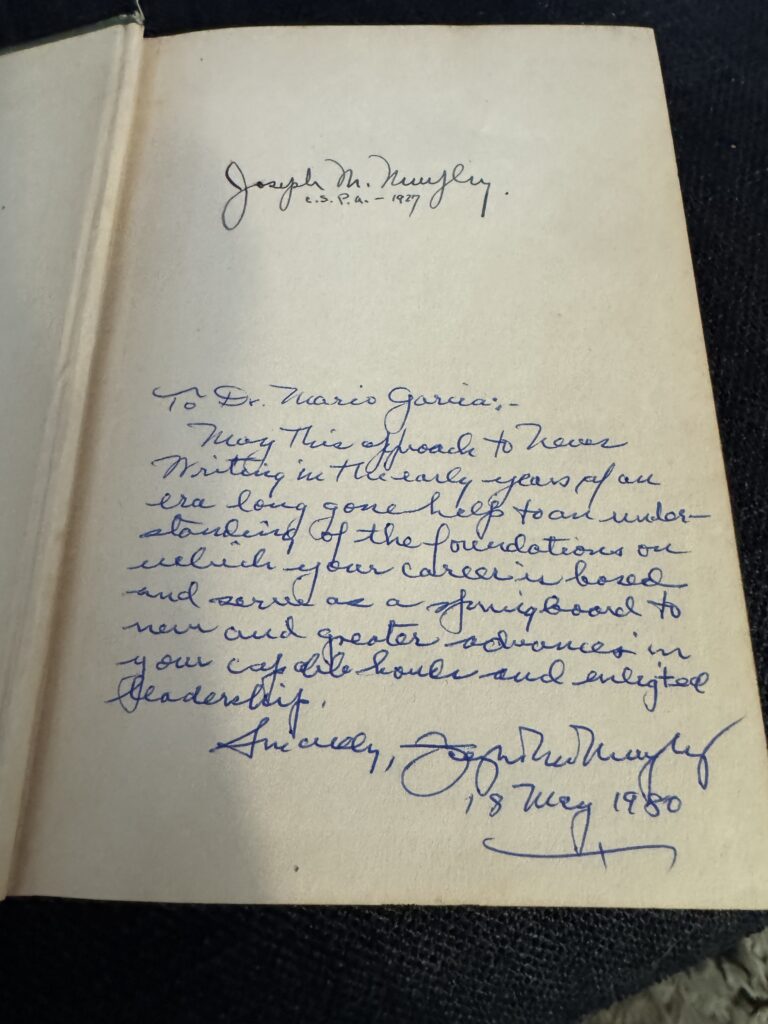 Joseph M. Murphy.
C.S.P.A. – 1927
To Dr. Mario Garcia:-
May this approach to News
Writing in the early years of an
era long gone help to an under-
standing of the foundations on
which your career is based
and serve as a springboard to
new and greater advances in
your capable hands and enligted
leadership.
Sincerely, Joseph M. Murphy
18 May 1980